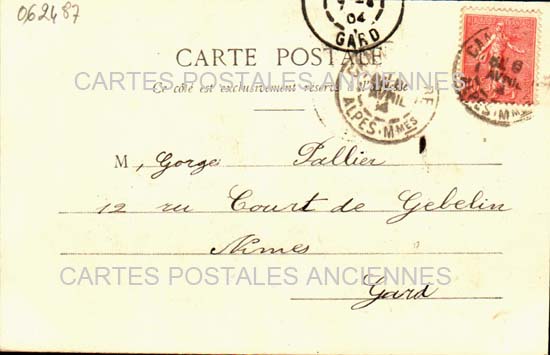 062487
04
GARD
CARTE POSTALE
CARTES POSTALES ANCIENNES
Ce côté est exclusivement réservé à l'adresse
AVRIL
ALPES-MMES
CAN
8
AVRIL
ALPES MMES
M, Gorge Pallier
12 ru Court de Gebelin
Nimes
CARTES POSTALES ANCIENNES
Gard